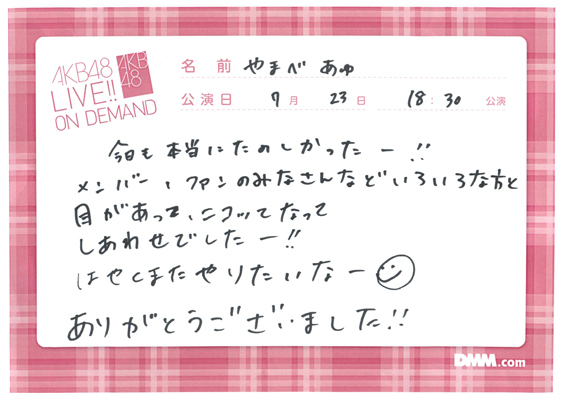 AKB48
LIVE!!
ON DEMAND
AKB
48
名前 やまべ あゆ
公演日 7月 23日 18:30 公演
今日も本当にたのしかったー!!
メンバー、ファンのみなさんなどいろいろな方と
目があって、ニコッてなって
しあわせでしたー!!
はやくまたやりたいなー
ありがとうございました!!
DMM.com